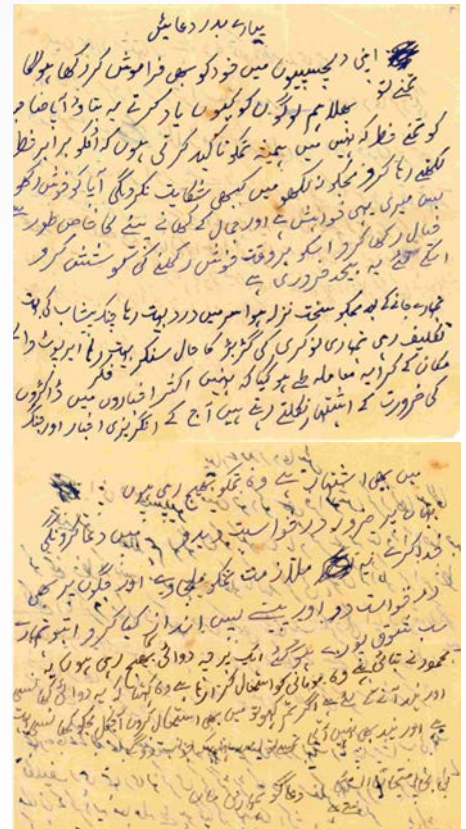 پیارے بدر دعائیں
اپنی دلچسپیوں میں خود کو بھی فراموش کر رکھا ہوگا
تمنے تو بھلا ہم لوگوں کو کیوں یاد کرتے یہ بتاؤ آپا
کو تمنے خط کہ نہیں میں ہمیشہ تمکو تاکید کرتی ہوں کہ انکو برابر خط
لکھتے رہا کرو مجکو نہ لکھو میں کبھی شکایت نکرونگی آپا کو خوش رکھو
بس میری یہی خواہش ہے اور جمال کے کھانے پینے کا خاص طور سے
خیال رکھا کرو اسکو ہر وقت خوش رکھنے کی کوشش کرو
اسکے لئے یہ بیحد ضروری ہے
تمہارے جانے کے بعد مجکو سخت نزلہ ہوا سر میں درد بہت رہا پیشاب کی بہت
تکلیف رہی تمہاری نوکری کی گڑبڑ کا حال سنکر بہت فکر رہا
مکان کے کرایہ معاملہ طے ہو گیا کہ نہیں اکثر اخباروں میں ڈاکٹروں
کی ضرورت کے اشتہار نکلتے رہتے ہیں آج کے انگریزی اخبار اور جنگ
میں بھی اشتہارات ہے وہ تمکو بھیج رہی ہوں
ضرور درخواست دیدو میں دعا کرونگی
خدا کرے یہ ملازمت تمکو ملجاوے اور جگہوں پر بھی
درخواست دو اور پیسے پس انداز کیا کرو اب تو تمہارے
سب شوق پورے ہو گئے ایک پرچہ دوائی کا بھیج رہی ہوں یہ
محمود نے بتائی ہے وہ کو استعمال کرا رہا ہے وہ کہتا کہ یہ دوائی
اور نیند آنے کے لئے ہے اگر تم کہو تو میں بھی استعمال کروں آجکل مجکو
ہے اور نیند بھی نہیں آتی
دعاگو تمہاری ماں